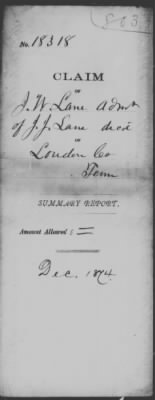 803
No. 18318
CLAIM
OF
J. W. Lane Admr
of J. J. Lane decd
OF
Loudon Co
Tenn
SUMMARY REPORT.
Amount Allowed: $ =
Dec. 1874.